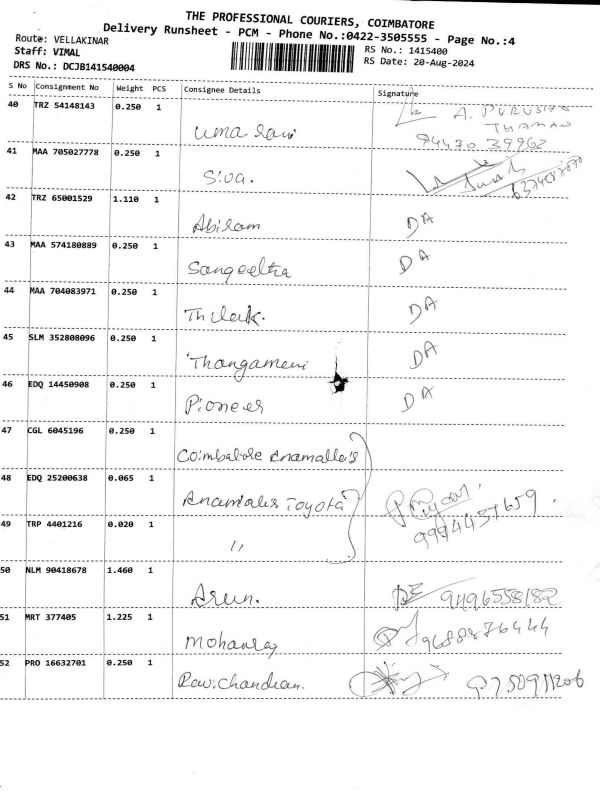 THE PROFESSIONAL COURIERS, COIMBATORE
Delivery Runsheet - PCM - Phone No.:0422-3505555 - Page No.:4
Route: VELLAKINAR
RS No.: 1415400
Staff: VIMAL
RS Date: 20-Aug-2024
DRS No.: DCJB141540004
S No Consignment No Weight PCS Consignee Details Signature
40 TRZ 54148143 0.250 1 Uma Rani A. PURUSHO
THAMAN
94430 39962
41 MAA 705027778 0.250 1 Siva.
42 TRZ 65001529 1.110 1 Abiram DA
43 MAA 574180889 0.250 1 Sangeetha DA
44 MAA 704083971 0.250 1 Thilak. DA
45 SLM 352808096 0.250 1 Thangameni DA
46 EDQ 14450908 0.250 1 Pioneer DA
47 CGL 6045196 0.250 1 Coimbatore Anamallais
48 EDQ 25200638 0.065 1 Anamalais Toyota
9994437659
49 TRP 4401216 0.020 1 "
50 NLM 90418678 1.460 1 Arun. 9496558182
51 MRT 377405 1.225 1 Mohanraj 9688876444
52 PRO 16632701 0.250 1 Ravichandran.